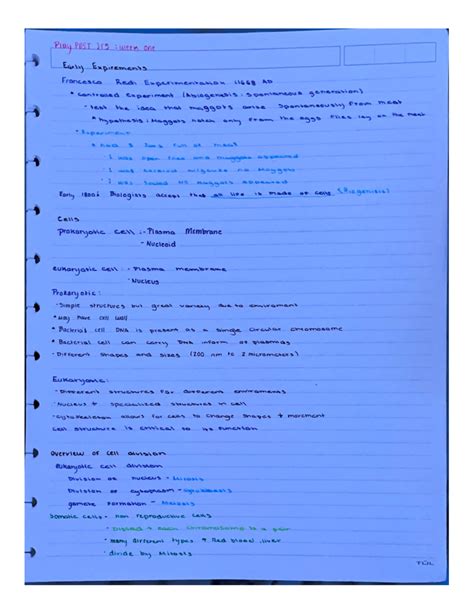 Play POST 215 : Week One
Early Expirements
Francesco Redi Experimentation (1668 AD
* Controlled Experiment (Abiogenesis : Spontaneous generation)
- Test the idea that maggots arise Spontaneously from meat
* hypothesis : Maggots hatch only from the eggs flies lay on the meat
* Experiment
full of meat
1 was open flies and maggots appeared
1 was no Maggots
1 was NO maggots appeared
Early 1800s Biologists accept that all life is made of cells (Biogenesis)
Cells
prokaryotic cell :- Plasma Membrane
- Nucleoid
eukaryotic cell :- Plasma membrane
- Nucleus
Prokaryotic :
- Simple structures but great variety due to enviroment
* May have cell wall
* Bacterial cell DNA is present as a single circular chromosome
* Bacterial cell can carry DNA inform of plasmids
- Different shapes and sizes (200 nm to 2 micrometers)
Eukaryotic :
- Different structures for different enviroments
- Nucleus + specialized structures in cell
- Cytoskeleton allows for cells to change shapes + movement
Cell structure is critical to its function
Overview of cell division
Eukaryotic cell division
Division of nucleus - Mitosis
Division of cytoplasm - Cytokinesis
gamete formation - Meiosis
Somatic Cells - non reproductive cells
- Diploid + each chromosome is a pair
- many different types Red blood, liver
- divide by Mitosis
TUL